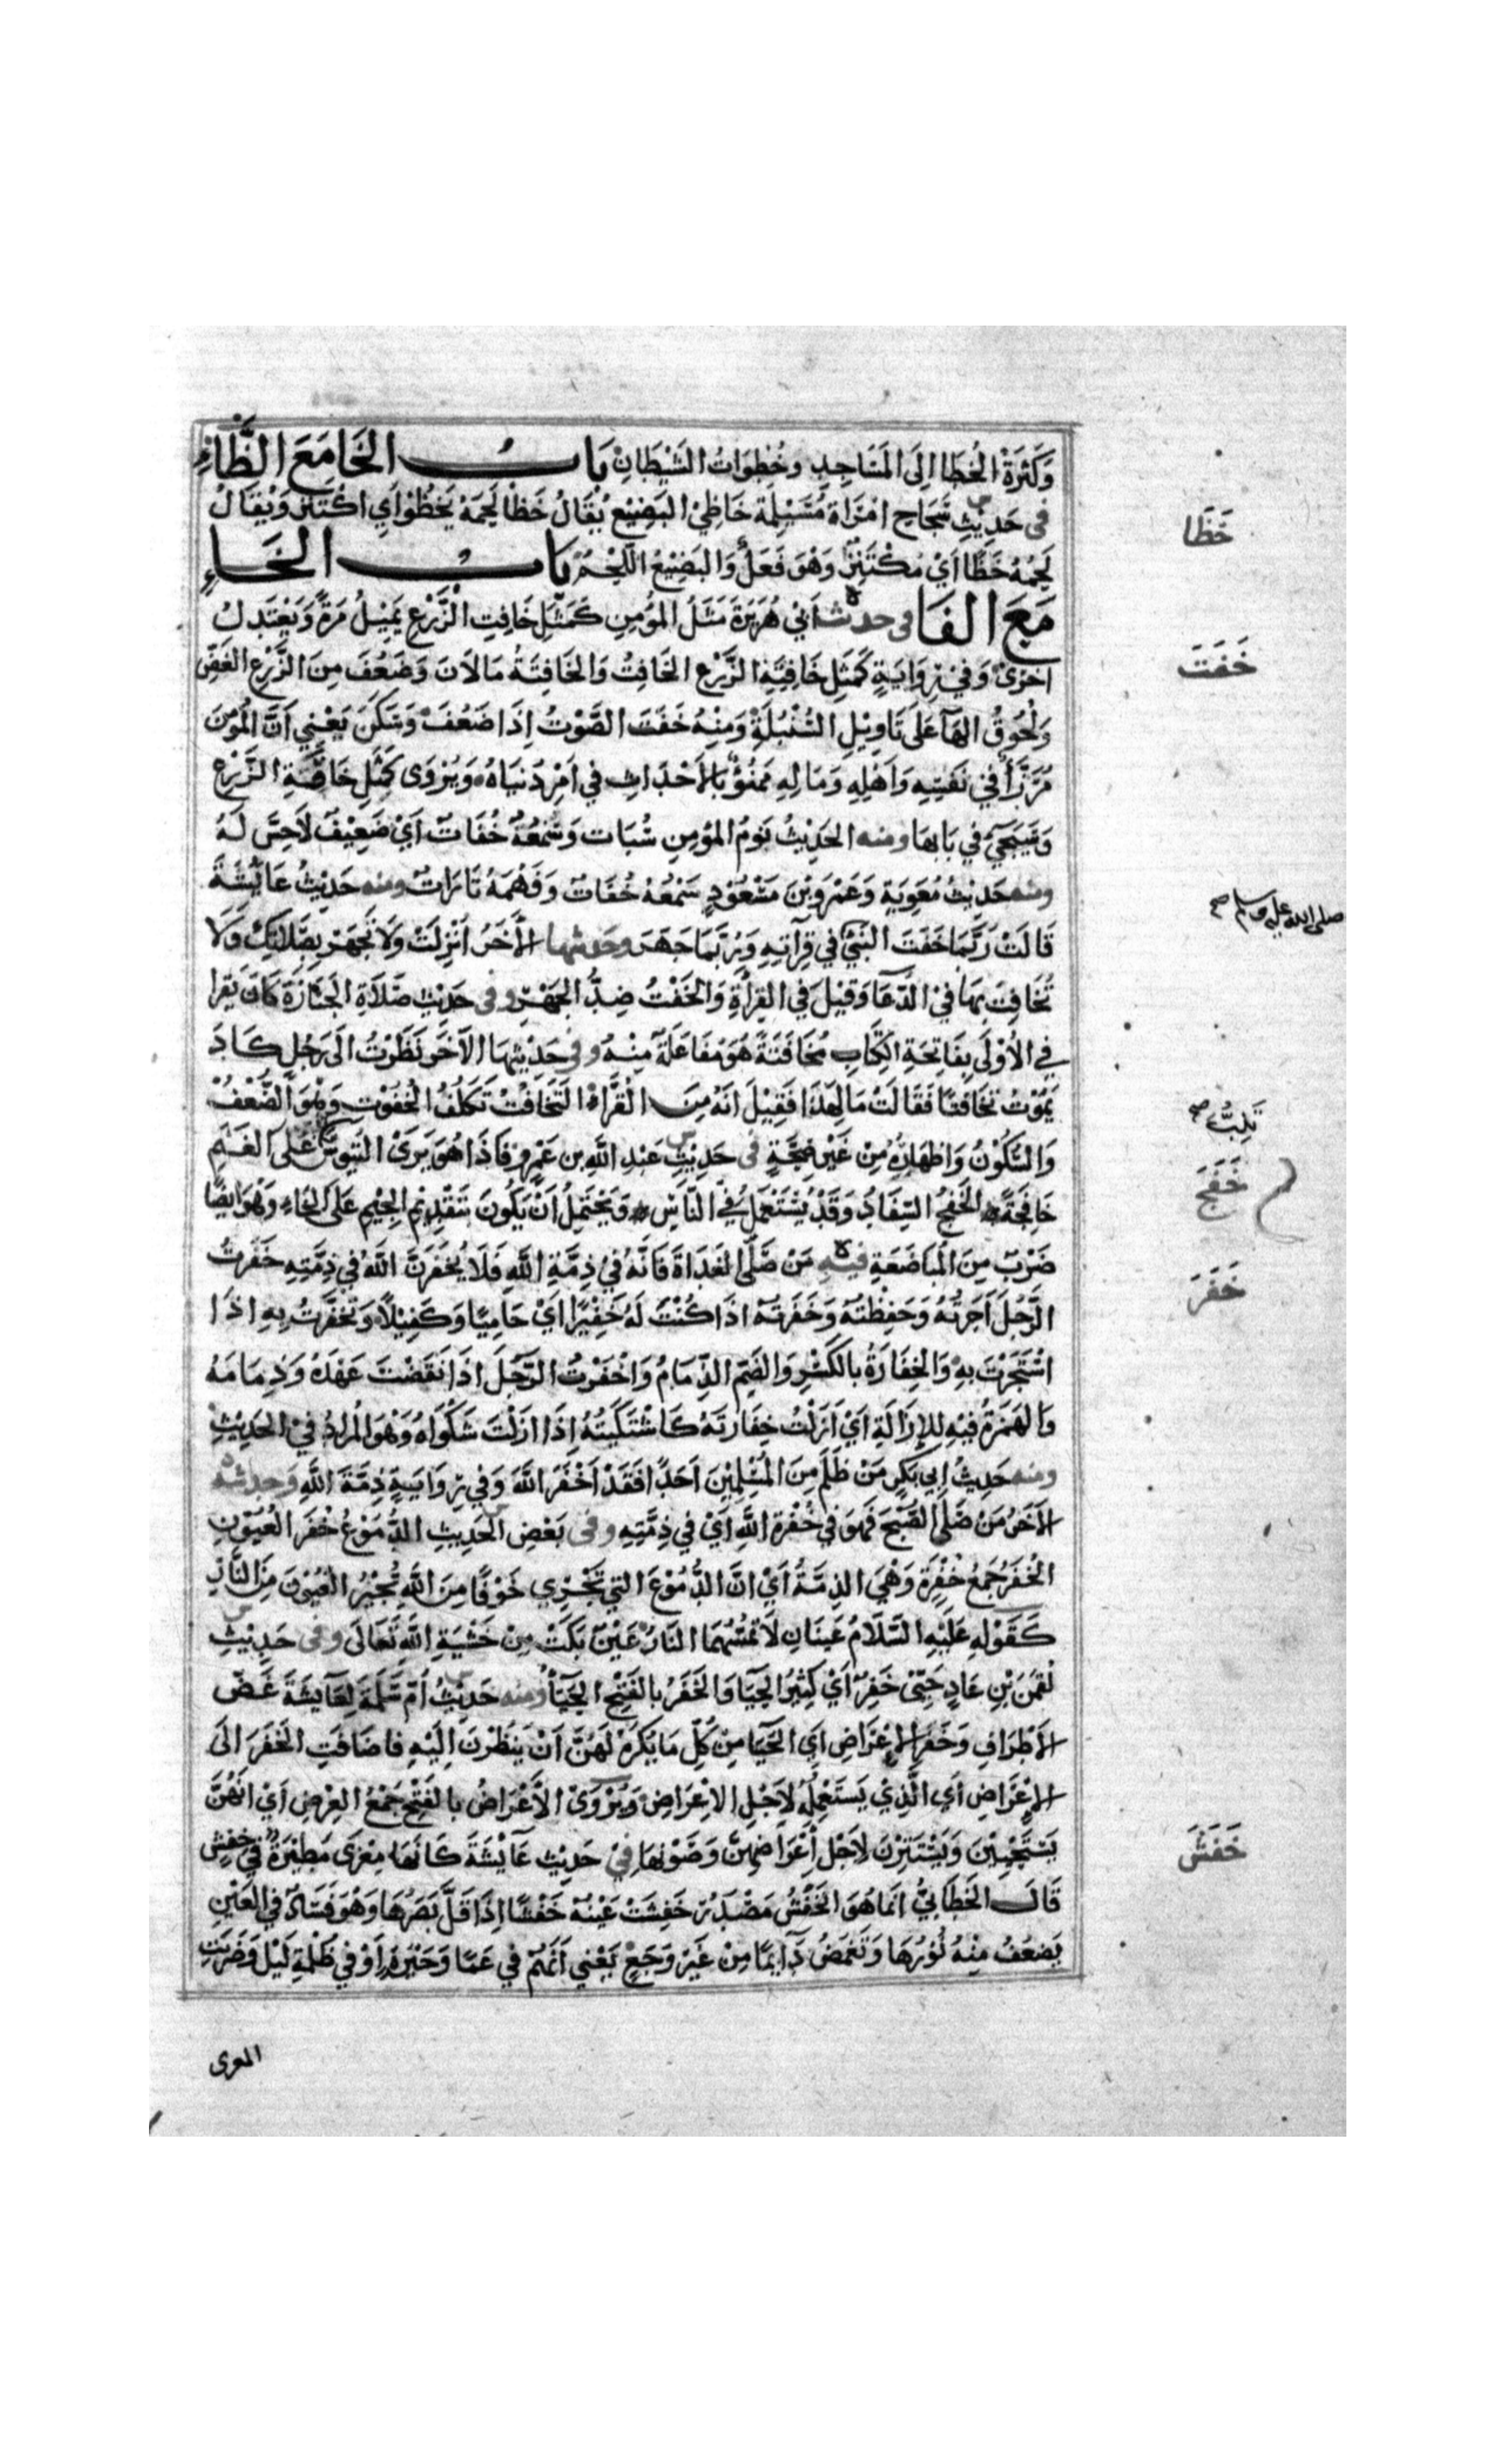 وَكَثْرَةُ الْخُطَا إِلَى الْمَسَاجِدِ وخُطُوَاتُ الشَّيْطَانِ بَابُ الْخَا مَعَ الظَّاءِ
فى حَدِيْثِ سَجَاحِ امْرَاةِ مُسَيْلِمَةَ خَاظِي الْبَضِيْعِ يُقَالُ خَظَا لَحْمُهُ يَخْظُوْ اَيِ اكْتَنَزَ وَيُقَالُ
لَحْمُهُ خَظَا اَيْ مُكْتَنِزٌ وَهْوَ فَعَلٌ وَالْبَضِيْعُ اللَّحْمُ بَابُ الْخَاءِ
مَعَ الْفَا فى حديث اَبِي هُرَيْرَةَ مَثَلُ الْمُؤْمِنِ كَمَثَلِ خَافِتِ الزَّرْعِ يَمِيْلُ مَرَّةً وَيَعْتَدِلُ
اُخْرٰى وَفِي رِوَايَةٍ كَمَثَلِ خَافِتَةِ الزَّرْعِ الْخَافِتُ وَالْخَافِتَةُ مَا لَانَ وَضَعُفَ مِنَ الزَّرْعِ الْغَضِّ
وَلُحُوْقُ الْهَاءِ عَلَى تَاوِيْلِ السُّنْبُلَةِ وَمِنْهُ خَفَتَ الصَّوْتُ اِذَا ضَعُفَ وَسَكَنَ يَعْنِي اَنَّ الْمُؤْمِنَ
مُرَزَّأٌ فِي نَفْسِهِ وَاَهْلِهِ وَمَالِهِ مَمْنُوٌّ بِالْاَحْدَاثِ فِي اَمْرِ دُنْيَاهُ وَيُرْوَى كَمَثَلِ خَافَةِ الزَّرْعِ
وَسَيَجِيْ فِي بَابِهَا ومنه الْحَدِيْثُ نَوْمُ الْمُؤْمِنِ سُبَات وَسَمْعُهُ خُفَاتٌ اَيْ ضَعِيْفٌ لَا حِسَّ لَهُ
ومنه حَدِيْثُ مُعَوِيَةَ وَعَمْرِو بْنَ مَسْعُوْدٍ سَمْعُهُ خُفَاتٌ وَفَهْمُهُ تَارَاتٌ ومنه حَدِيْثُ عَائِشَةَ
قَالَتْ رُبَّمَا خَفَتَ النَّبِيُّ فِي قِرَآتِهِ وَرُبَّمَا جَهَرَ وحديثها الْآخَرُ اُنْزِلَتْ وَلَا تَجْهَرْ بِصَلَاتِكَ وَلَا
تُخَافِتْ بِهَا فِي الدُّعَا وَقِيْلَ فِي الْقِرَاءَةِ وَالْخَفْتُ ضِدُّ الْجَهْرِ وفى حَدِيْثِ صَلَاةِ الْجَنَازَةِ كَانَ يَقْرَا
فِي الْاُوْلَى بِفَاتِحَةِ الْكِتَابِ مُخَافَتَةً هُوَ مُفَاعَلَةٌ مِنْهُ وفى حَدِيْثِهَا الْآخَرِ نَظَرْتُ اِلَى رَجُلٍ كَادَ
يَمُوْتُ تَخَافُتًا فَقَالَتْ مَا لِهٰذَا فَقِيْلَ اَنَّهُ مِنَ الْقُرَّاءِ التَّخَافُتُ تَكَلُّفُ الْخُفُوْتِ وَهْوَ الضُّعْفُ
وَالسُّكُوْنُ وَاِظْهَارُهُ مِنْ غَيْرِ صِحَّةٍ فى حَدِيْثِ عَبْدِ اللهِ بن عَمْرٍو فَاِذَا هُوَ يَرَى التُّيُوْسَ عَلَى الْغَنَمِ
خَافِجَةً الْخَفْجُ السِّفَادُ وَقَدْ يُسْتَعْمَلُ فِي النَّاسِ وَيَحْتَمِلُ اَنْ يَكُوْنَ بِتَقْدِيْمِ الْجِيْمِ عَلَى الْخَاءِ وَهْوَ اَيْضًا
ضَرْبٌ مِنَ الْمُبَاضَعَةِ فيه مَنْ صَلَّى الْغَدَاةَ فَاِنَّهُ فِي ذِمَّةِ اللهِ فَلَا يُخْفِرَنَّ اللهَ فِي ذِمَّتِهِ خَفَرْتُ
الرَّجُلَ اَجَرْتُهُ وَحَفِظْتُهُ وَخَفَرْتُهُ اِذَا كُنْتَ لَهُ خَفِيْرًا اَيْ حَامِيًا وَكَفِيْلًا وَتَخَفَّرْتُ بِهِ اِذَا
اسْتَجَرْتَ بِهِ وَالْخِفَارَةُ بِالْكَسْرِ وَالضَّمِّ الذِّمَامُ وَاَخْفَرْتُ الرَّجُلَ اِذَا نَقَضْتَ عَهْدَهُ وَذِمَامَهُ
وَالْهَمْزَةُ فِيْهِ لِلْاِزَالَةِ اَيْ اَزَلْتُ خِفَارَتَهُ كَاَشْتَكَيْتُهُ اِذَا ازَلْتَ شَكْوَاهُ وَهْوَ الْمُرَادُ فِي الْحَدِيْثِ
ومنه حَدِيْثُ اَبِي بَكْرٍ مَنْ ظَلَمَ مِنَ الْمُسْلِمِيْنَ اَحَدًا فَقَدْ اَخْفَرَ اللهَ وَفِي رِوَايَةٍ ذِمَّةَ اللهِ وَحديثه
الْآخَرُ مَنْ صَلَّى الصُّبْحَ فَهُوَ فِي خُفْرَةِ اللهِ اَيْ فِي ذِمَّتِهِ وفى بَعْضِ الْحَدِيْثِ الدُّمُوْعُ خُفَرُ الْعُيُوْنِ
الْخُفَرُ جَمْعُ خُفْرَةٍ وَهْيَ الذِّمَّةُ اَيْ اَنَّ الدُّمُوْعَ التِي تَجْرِي خَوْفًا مِنَ اللهِ تُجِيْرُ الْعُيُوْنَ مِنَ النَّارِ
كَقَوْلِهِ عَلَيْهِ السَّلَامُ عَيْنَانِ لَا تَمَسُّهُمَا النَّارُ عَيْنٌ بَكَتْ مِنْ خَشْيَةِ اللهِ تَعَالَى وفى حَدِيْثِ
لُقْمٰنَ بْنِ عَادٍ حَيِيٌّ خَفِرٌ اَيْ كَثِيْرُ الْحَيَا وَالْخَفَرُ بِالْفَتْحِ الْحَيَاءُ ومنه حَدِيْثُ اُمِّ سَلَمَةَ لِعَايِشَةَ غَضُّ
الْاَطْرَافِ وَخَفَرُ الْاِعْرَاضِ اَيِ الْحَيَا مِنْ كُلِّ مَا يُكْرَهُ لَهُنَّ اَنْ يَنْظُرْنَ اِلَيْهِ فاضَافَتِ الْخَفَرَ اِلَى
الْاِعْرَاضِ اَيِ الَّذِي يَسْتَعْمِلُهُ لِاَجْلِ الْاِعْرَاضِ وَيُرْوَى الْاَعْرَاضُ بِالْفَتْحِ جَمْعُ الْعِرْضِ اَيْ اَنَّهُنَّ
يَسْتَحْيِيْنَ وَيَسْتَتِرْنَ لِاَجْلِ اَعْرَاضِهِنَّ وَصَوْنِهَا فِيْ حَدِيْثِ عَائِشَةَ كَاَنَّهَا مِعْزَى مَطِيْرَةٌ فِي خَفْشٍ
قَالَ الْخَطَّابِيُّ اِنَّمَا هُوَ الْخَفْشُ مَصْدَرُ خَفِشَتْ عَيْنُهُ خَفْشًا اِذَا قَلَّ بَصَرُهَا وَهُوَ فَسَادٌ فِي الْعَيْنِ
يَضْعُفُ مِنْهُ نُوْرُهَا وَتَغْمَضُ دَايِمًا مِنْ غَيْرِ وَجَعٍ يَعْنِي اَنَّهُمْ فِي عَمًا وَحَيْرَةٍ اَوْ فِي ظُلْمَةِ لَيْلٍ وَضَرَبَتِ
المعزى
خَظَا
خَفَتَ
صلى الله عليه وسلم صح
تَلِبُّ صح
خَفَجَ
خَفَرَ
خَفَشَ